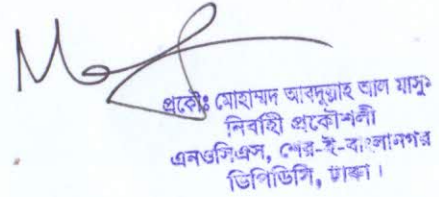 প্রকৌঃ মোহাম্মদ আবদুল্লাহ আল মাসুম
নির্বাহী প্রকৌশলী
এনওসিএস, শের-ই-বাংলানগর
ডিপিডিসি, ঢাকা।